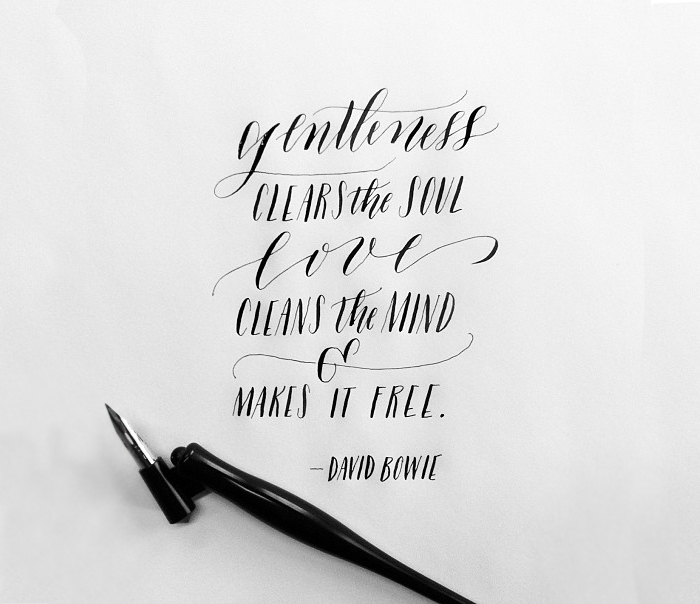 gentleness
CLEARS the SOUL
love
CLEANS the MIND
&
MAKES IT FREE.
—DAVID BOWIE